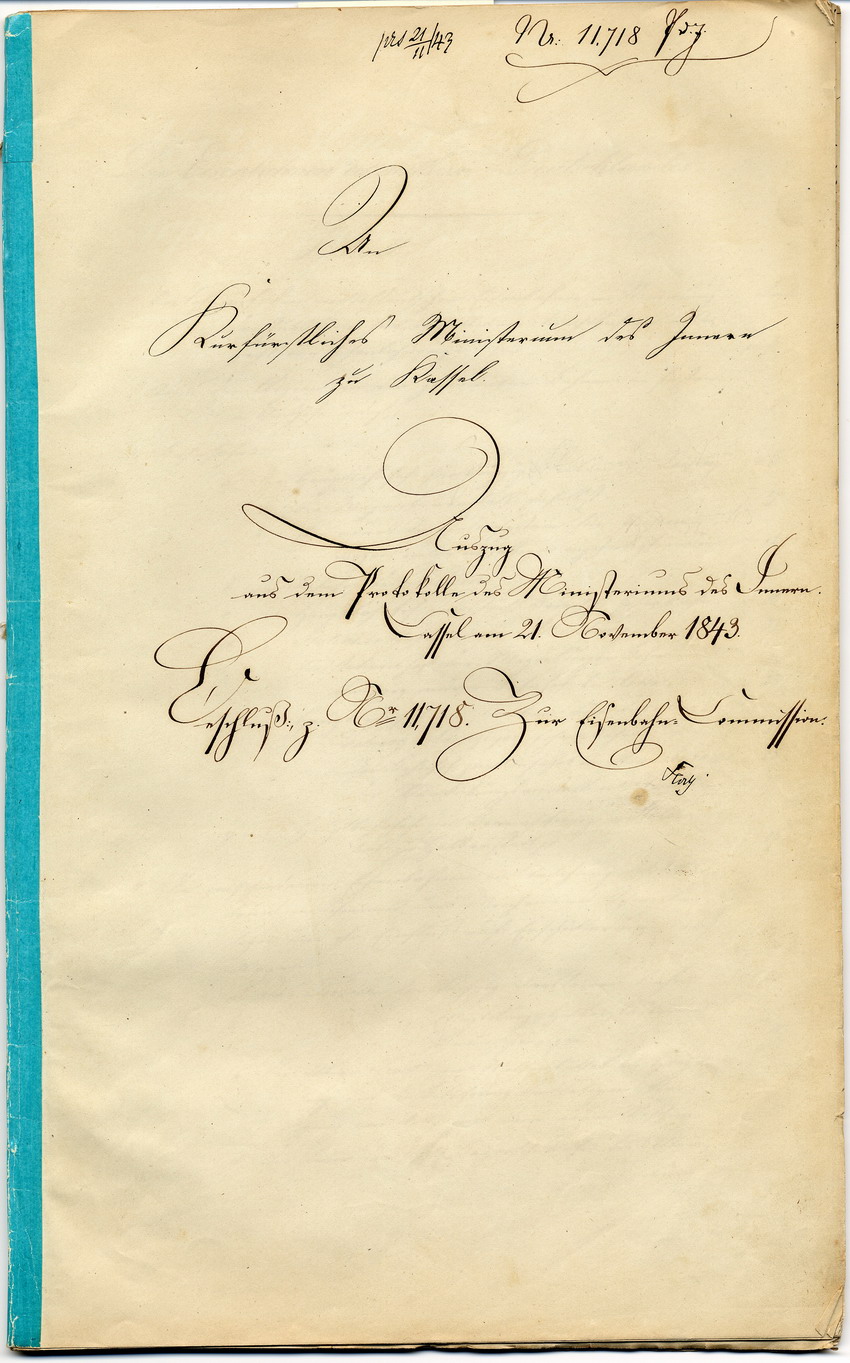 prs 21/11/43 Nr. 11,718
An
Kurfürstliches Ministerium des Innern
zu Kassel.
Auszug
aus dem Protokolle des Ministeriums des Innern.
Cassel am 21. November 1843.
Beschluß:, z. Nr 11,718. Zur Eisenbahn-Commission.